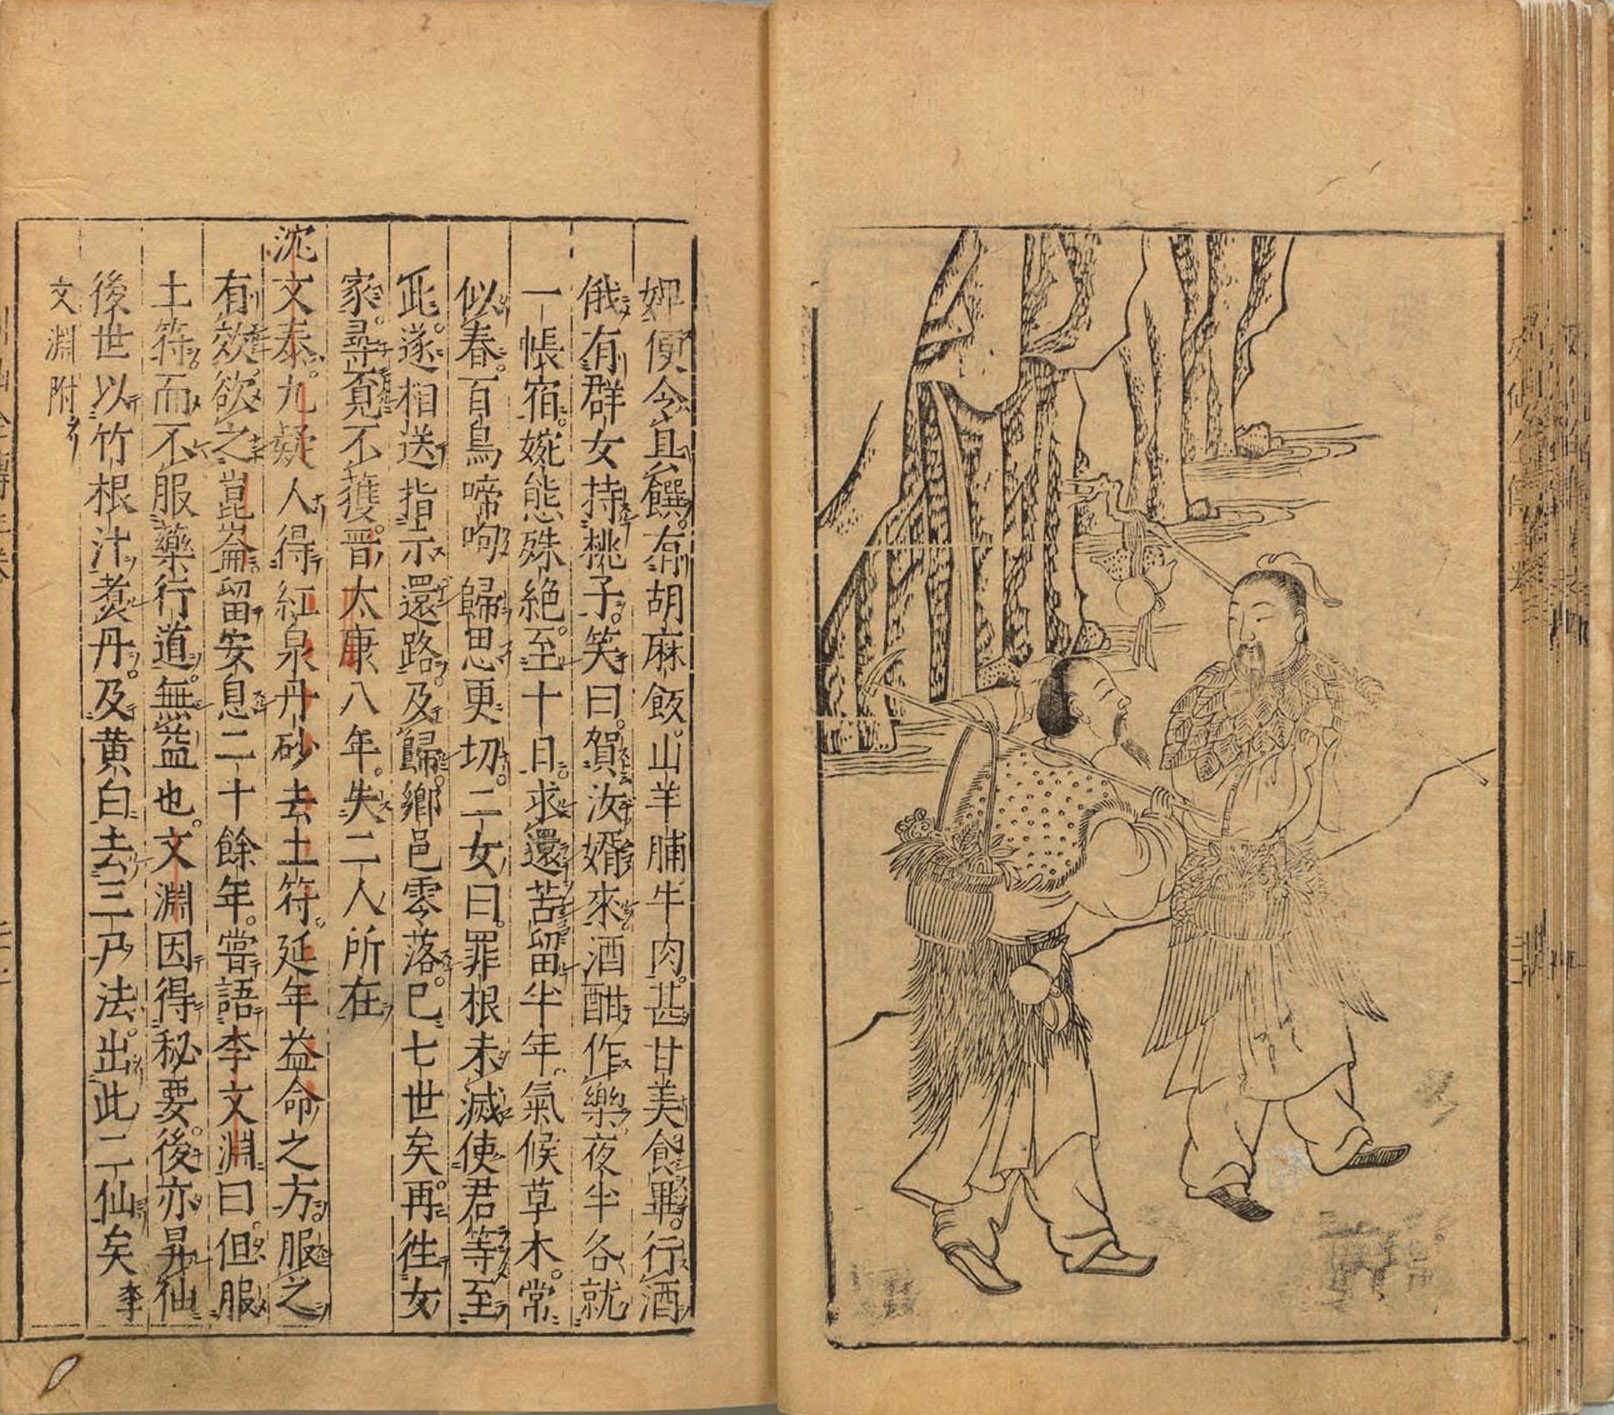 婢便令具饌有胡麻飯山羊脯牛肉甚甘美食畢行酒
俄有群女持桃子笑曰賀汝婿來酒酣作樂夜半各就
一帳宿婉態殊絶至十日求還苦留半年氣候草木常
似春百鳥啼呴歸思更切二女曰罪根未滅使君等至
此遂相送指示還路及歸鄉邑零落已七世矣再徃女
家尋覓不獲晋太康八年失二人所在
沈文泰九疑人得紅泉丹砂去土符延年益命之方服之
有效欲之崑崙留安息二十餘年嘗語李文淵曰但服
土符而不服藥行道無益也文淵因得秘要後亦昇仙
後世以竹根汁煑丹及黄白去三尸法出此二仙矣 李
文淵附